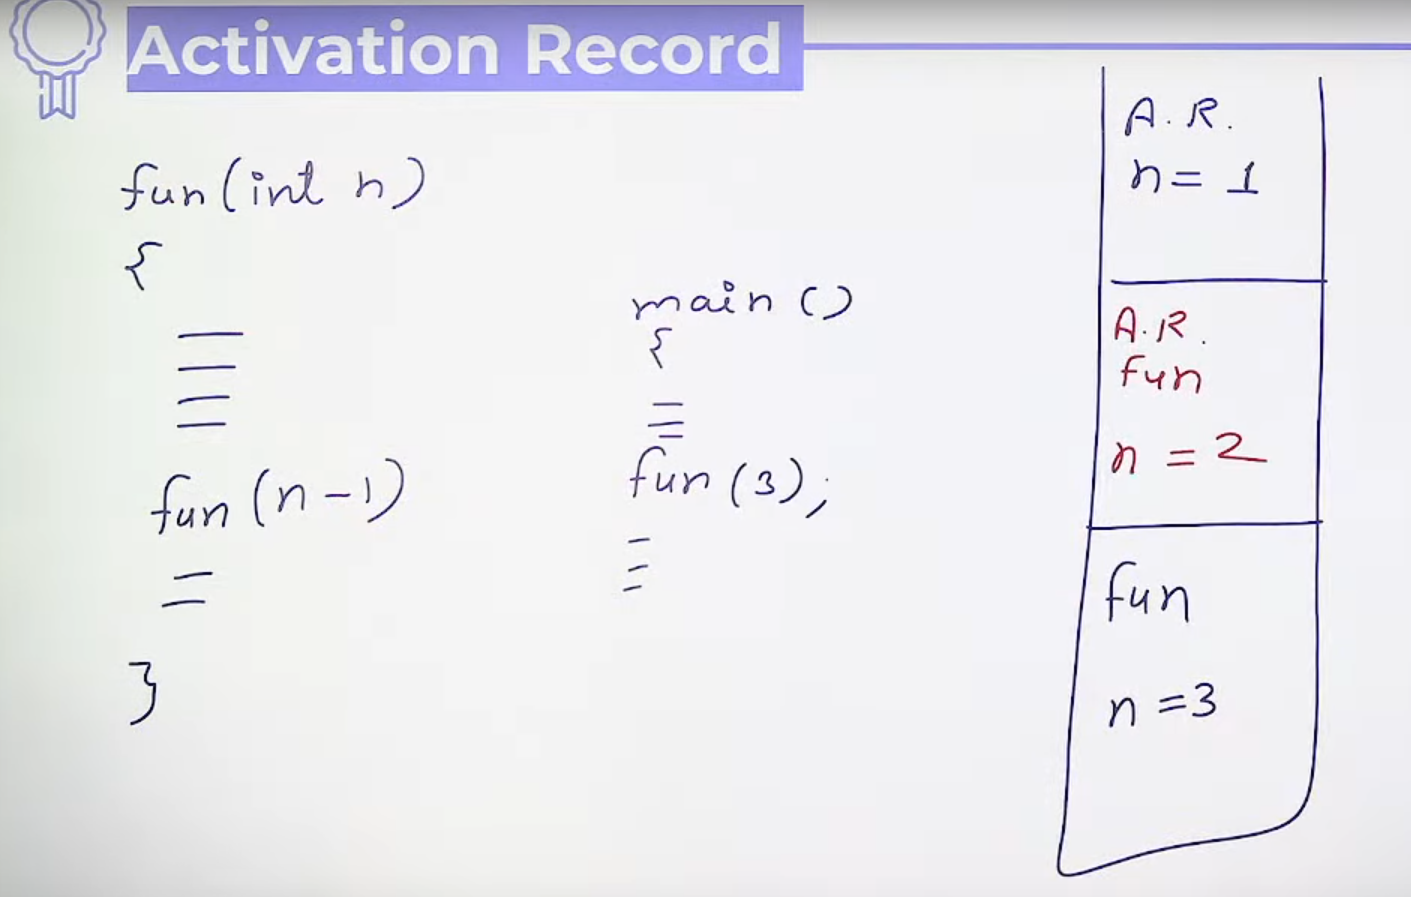 Activation Record
fun(int n)
{
fun(n-1)
}
main()
{
fun(3);
A.R.
n=1
A.R.
fun
n=2
fun
n=3